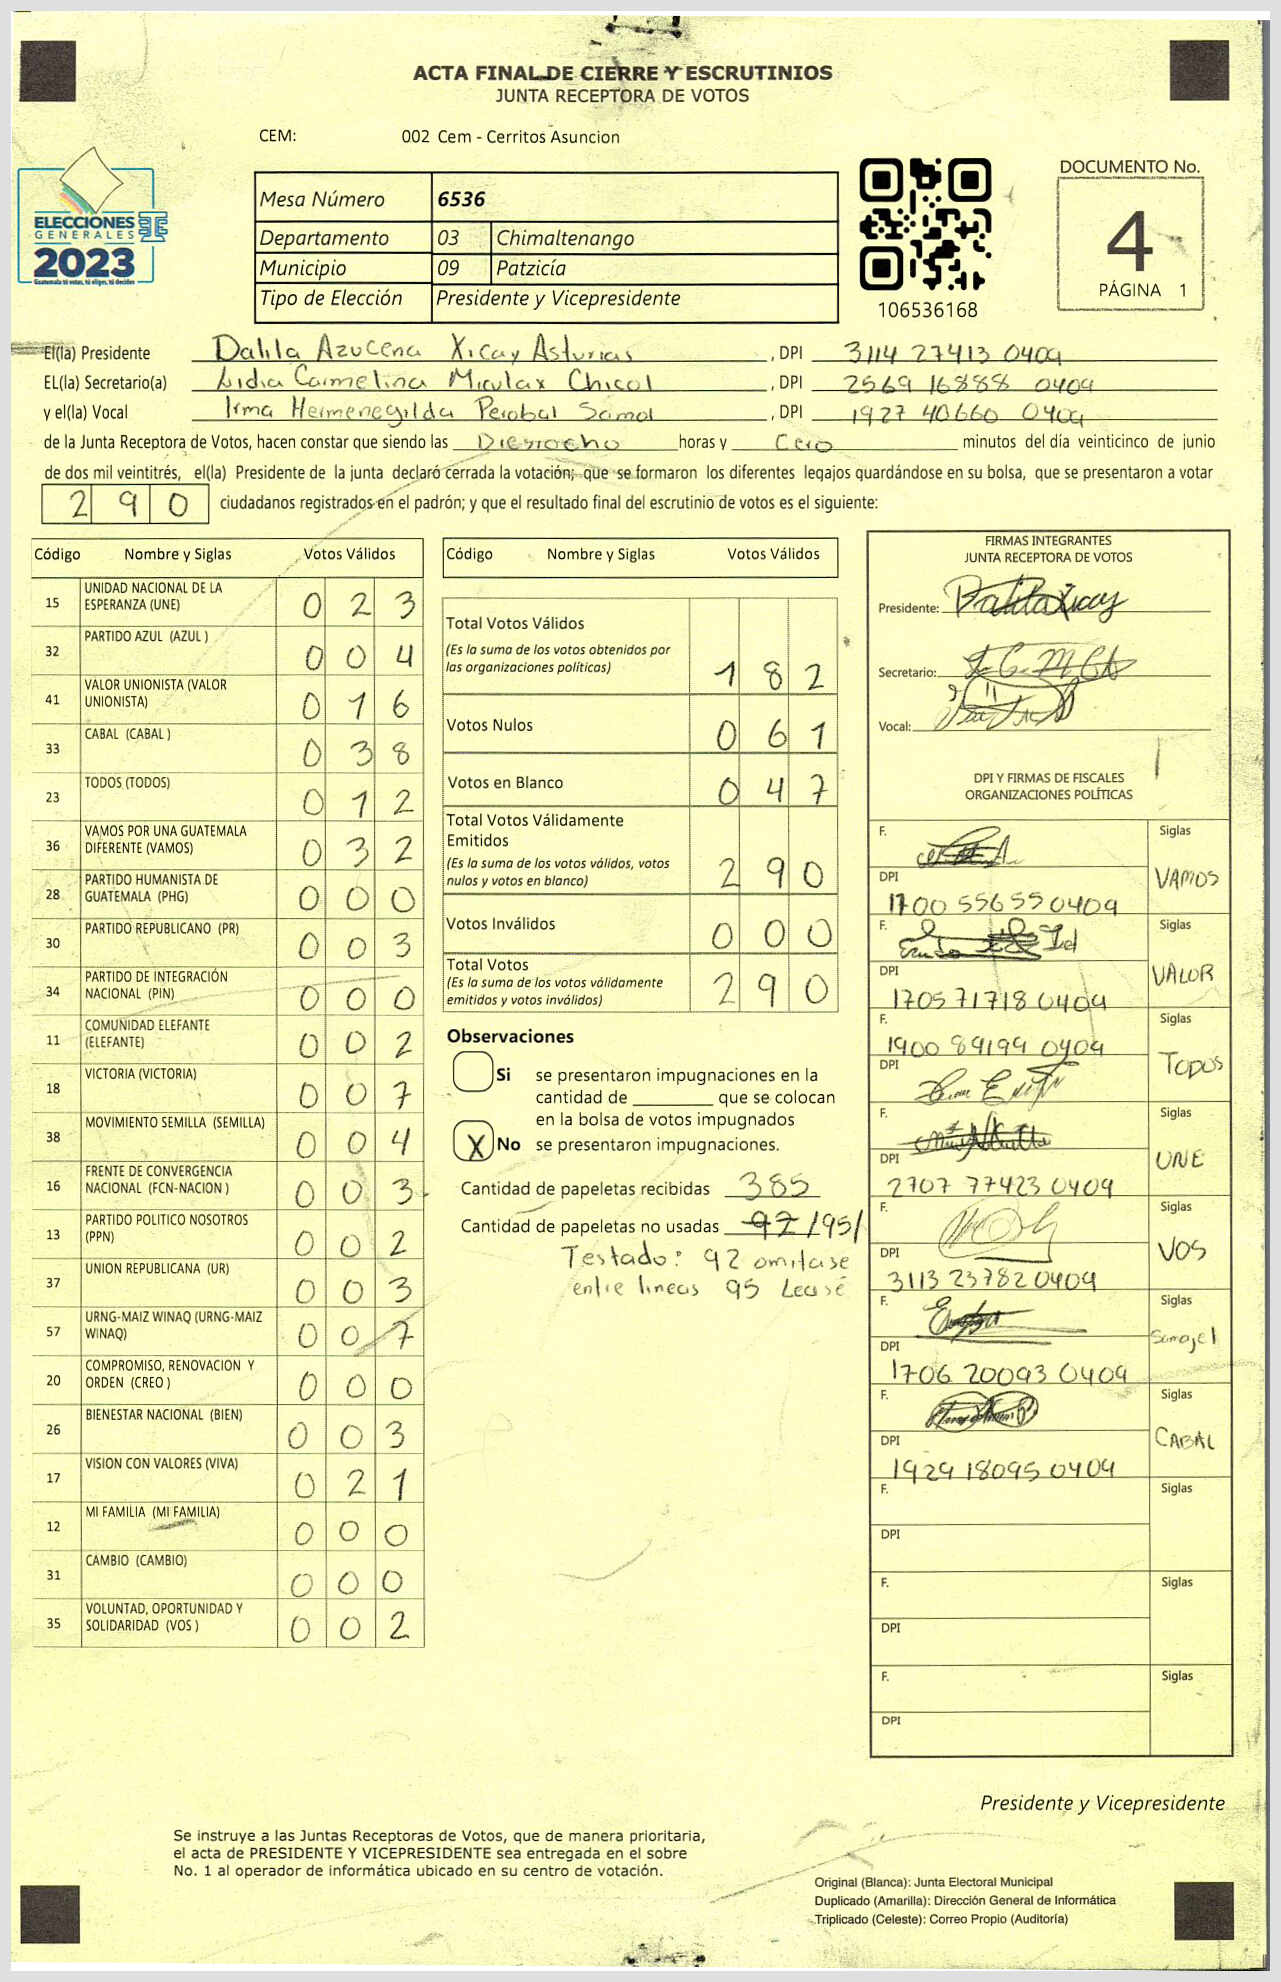 ACTA FINAL DE CIERRE Y ESCRUTINIOS
JUNTA RECEPTORA DE VOTOS
CEM: 002 Cem - Cerritos Asuncion
ELECCIONES
GENERALES
2023
Guatemala tú votas, tú eliges, tú decides
TSE
Mesa Número 6536
Departamento 03 Chimaltenango
Municipio 09 Patzicía
Tipo de Elección Presidente y Vicepresidente
106536168
DOCUMENTO No.
4
PÁGINA 1
El(la) Presidente Dalila Azucena Xicay Asturias, DPI 3114 27413 0409
EL(la) Secretario(a) Lidia Carmelina Miculax Chicol, DPI 2569 16888 0409
y el(la) Vocal Irma Hermenegilda Perobal Samol, DPI 1927 40660 0409
de la Junta Receptora de Votos, hacen constar que siendo las Dieciocho horas y Cero minutos del día veinticinco de junio
de dos mil veintitrés, el(la) Presidente de la junta declaró cerrada la votación; que se formaron los diferentes legajos guardándose en su bolsa, que se presentaron a votar
290 ciudadanos registrados en el padrón; y que el resultado final del escrutinio de votos es el siguiente:
Código Nombre y Siglas Votos Válidos
15 UNIDAD NACIONAL DE LA ESPERANZA (UNE) 023
32 PARTIDO AZUL (AZUL ) 004
41 VALOR UNIONISTA (VALOR UNIONISTA) 016
33 CABAL (CABAL ) 038
23 TODOS (TODOS) 012
36 VAMOS POR UNA GUATEMALA DIFERENTE (VAMOS) 032
28 PARTIDO HUMANISTA DE GUATEMALA (PHG) 000
30 PARTIDO REPUBLICANO (PR) 003
34 PARTIDO DE INTEGRACIÓN NACIONAL (PIN) 000
11 COMUNIDAD ELEFANTE (ELEFANTE) 002
18 VICTORIA (VICTORIA) 007
38 MOVIMIENTO SEMILLA (SEMILLA) 004
16 FRENTE DE CONVERGENCIA NACIONAL (FCN-NACION ) 003
13 PARTIDO POLITICO NOSOTROS (PPN) 002
37 UNION REPUBLICANA (UR) 003
57 URNG-MAIZ WINAQ (URNG-MAIZ WINAQ) 007
20 COMPROMISO, RENOVACION Y ORDEN (CREO ) 000
26 BIENESTAR NACIONAL (BIEN) 003
17 VISION CON VALORES (VIVA) 021
12 MI FAMILIA (MI FAMILIA) 000
31 CAMBIO (CAMBIO) 000
35 VOLUNTAD, OPORTUNIDAD Y SOLIDARIDAD (VOS ) 002
Código Nombre y Siglas Votos Válidos
Total Votos Válidos
(Es la suma de los votos obtenidos por las organizaciones políticas) 182
Votos Nulos 061
Votos en Blanco 047
Total Votos Válidamente Emitidos
(Es la suma de los votos válidos, votos nulos y votos en blanco) 290
Votos Inválidos 000
Total Votos
(Es la suma de los votos válidamente emitidos y votos inválidos) 290
Observaciones
Si se presentaron impugnaciones en la
cantidad de ________ que se colocan
en la bolsa de votos impugnados
X No se presentaron impugnaciones.
Cantidad de papeletas recibidas 385
Cantidad de papeletas no usadas 92 /95/
Testado: 92 omitase
entre lineas 95 Lease
FIRMAS INTEGRANTES
JUNTA RECEPTORA DE VOTOS
Presidente:
Secretario:
Vocal:
DPI Y FIRMAS DE FISCALES
ORGANIZACIONES POLÍTICAS
F. Siglas
DPI VAMOS
1700 55655 0409
F. Siglas
DPI VALOR
1705 71718 0409
F. Siglas
1900 89199 0409
DPI TODOS
F. Siglas
DPI UNE
2707 77423 0409
F. Siglas
DPI VOS
3113 23782 0409
F. Siglas
DPI
1706 20093 0409
F. Siglas
DPI CABAL
1929 18095 0409
F. Siglas
DPI
F. Siglas
DPI
F. Siglas
DPI
Presidente y Vicepresidente
Se instruye a las Juntas Receptoras de Votos, que de manera prioritaria,
el acta de PRESIDENTE Y VICEPRESIDENTE sea entregada en el sobre
No. 1 al operador de informática ubicado en su centro de votación.
Original (Blanca): Junta Electoral Municipal
Duplicado (Amarilla): Dirección General de Informática
Triplicado (Celeste): Correo Propio (Auditoría)